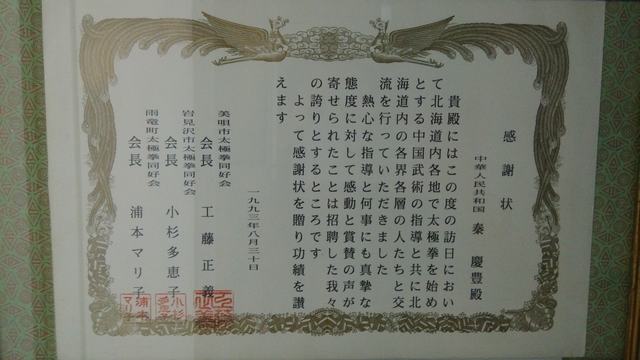 感謝状
中華人民共和国 秦慶豊殿
貴殿にはこの度の訪日におい
て北海道内各地で太極拳を始め
とする中国武術の指導と共に北
海道内の各界各層の人たちと交
流を行っていただきました
熱心な指導と何事にも真摯な
態度に対して感動と賞賛の声が
寄せられたことは招聘した我々
の誇りとするところです
よって感謝状を贈り功績を讃
えます
一九九三年八月三十日
美唄市太極拳同好会
会長 工藤正義
岩見沢市太極拳同好会
会長 小杉多恵子
雨竜町太極拳同好会
会長 浦本マリ子